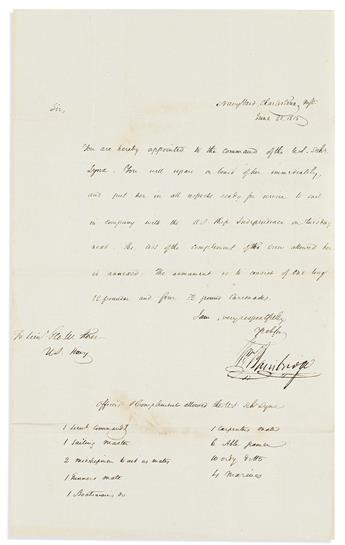 Navy Yard, Charlestown, Mss.
June 21. 1815
Sir,
You are hereby appointed to the command of the U.S. Schr.
Lynx. You will repair on board of her immediately,
and put her in all respects ready for service to sail
in company with the U.S. Ship Independence on Tuesday
next. The list of the complement of the crew allowed her
is annexed. The armament is to consist of one long
12 pounder and four pounds Caronades.
I am, very respectfully
Yr obt
Wm. Bainbridge
To Lieut. Geo. W.
U.S. Navy
Officers & Complement allowed the U.S. Schr Lynx
1 Lieut. Commandg
1 Sailing Master
2 midshipmen to act as mates
1 Gunners mate
1 Boatswains do
1 Carpenters mate
6 Able
10 ordy ditto
4 Marines